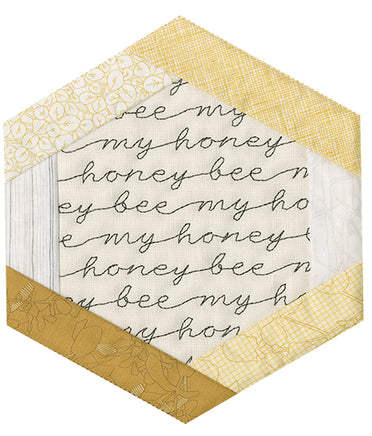 y
bee my
my honey
honey bee n
ey bee my ho
my honey
honey bee n
ey bee my h
my hon
y b